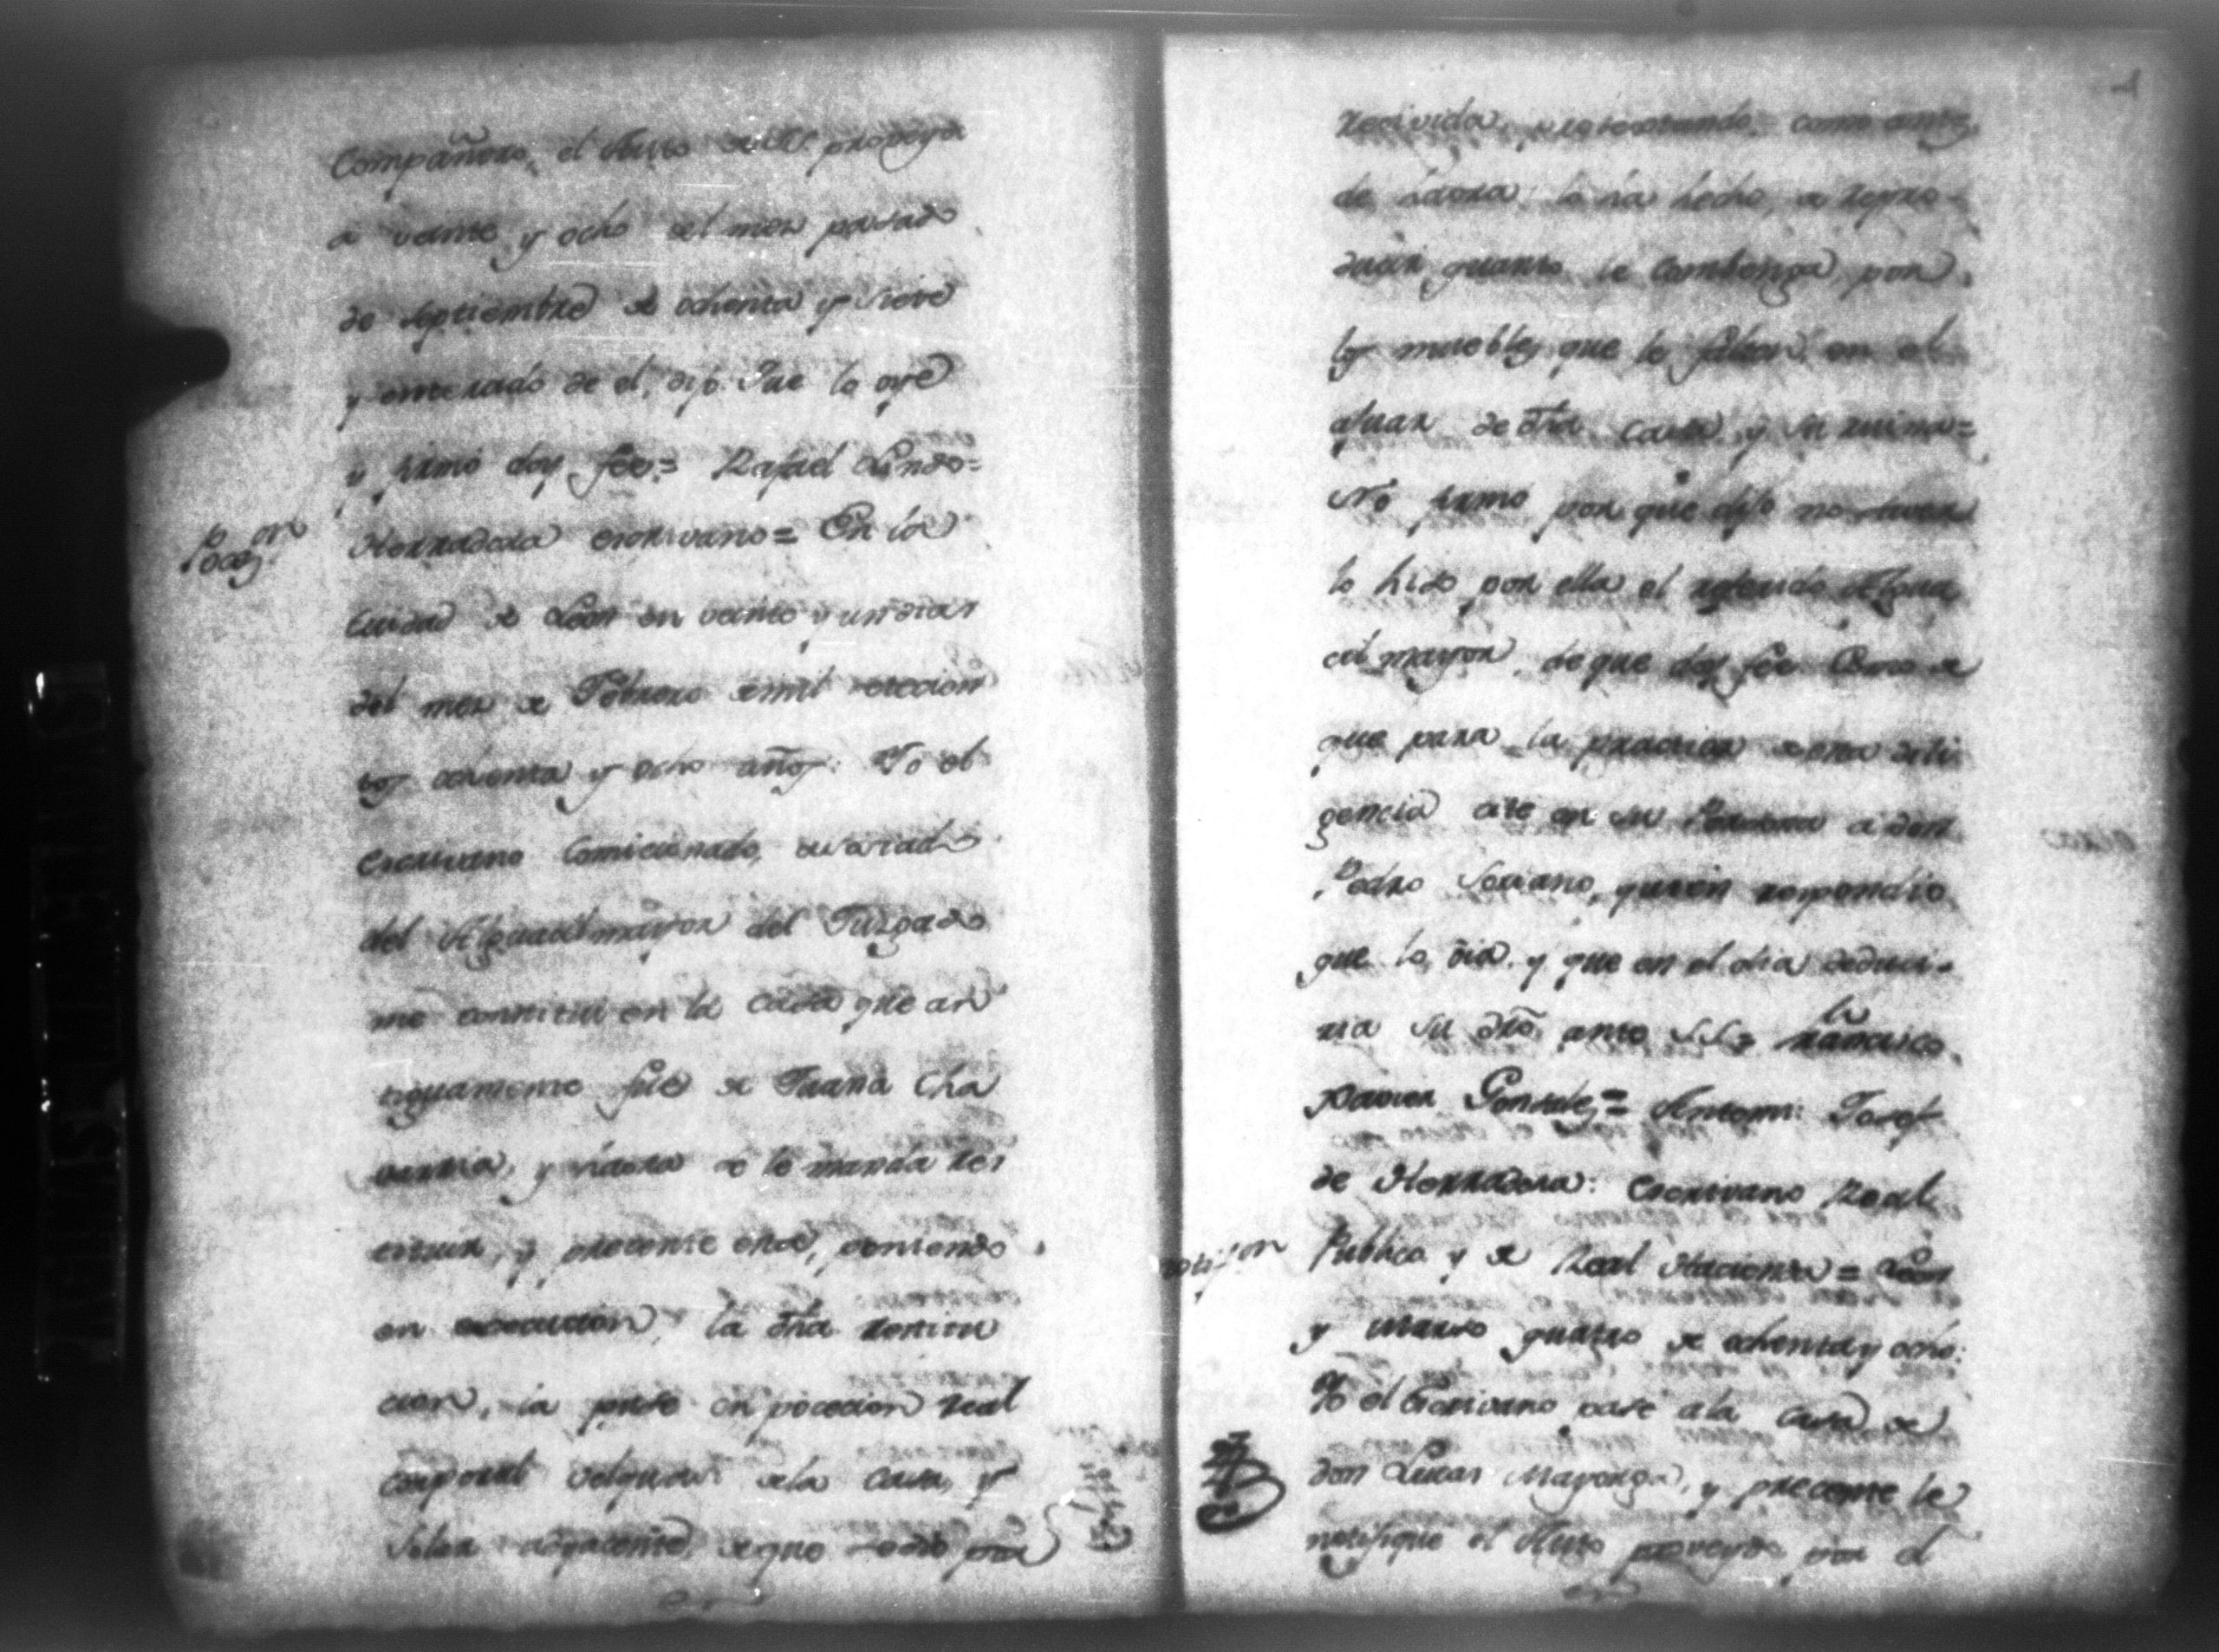 Compañero, el Auto proveyo
a veinte y ocho del mes pasado
de septiembre de ochenta y siete
y enterado de el, dijo: Que lo oye
y firmó doy fee = Rafael Lindo =
Herradora escrivano = En la
Posn.
ciudad de Leon en veinte y un dias
del mes de Febrero de mil setecien
tos ochenta y ocho años: Yo el
Escrivano Comicionado,
del Alguacil mayor del Juzgado
me constitui en la casa que an
tiguamente fue de Juana Cha
varria, y ahora se le manda res
tituir, y precente esta, poniendo
en execucion, la dha restitu
cion, la puse en pocecion real
corporal de la casa, y
Solar adyacente, de que
recivida, protestando, como antes
de haora lo ha hecho, a repro
ducir quanto le combenga, por
los muebles que le faltan en el
ajuar de dha casa, y su ruina =
No firmo por que dijo no saver
lo hizo por ella el referido Algua
cil mayor, de que doy fee
que para la practica de esta dili
gencia cite en su Persona a don
Pedro Soriano, quien respondio
que lo oia, y que en el dia deduci
ria su dro. ante Francisco
Xavier Gonzales = Antoni: Josef
de Herradora: Escrivano Real
Publico y de Real Hacienda = Leon
notifon
y Marzo quatro de ochenta y ocho:
Yo el Escrivano pase a la casa de
don Lucas Mayorga, y precente le
notifique el Auto proveydo por el